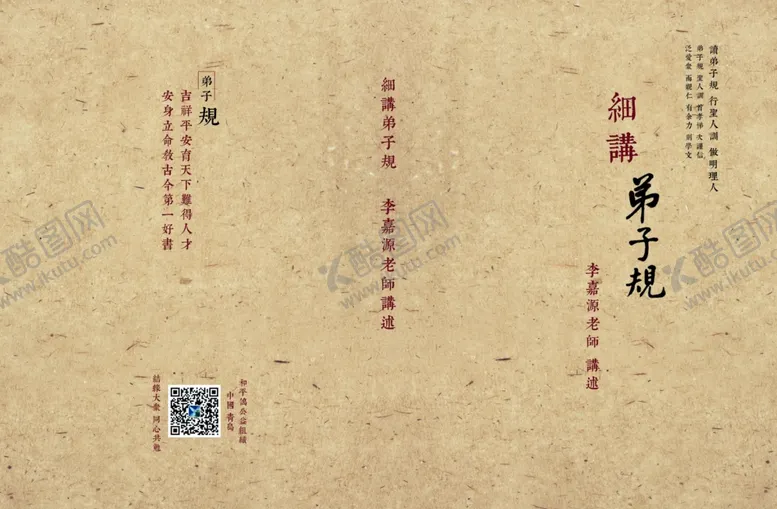 讀弟子規 行聖人訓 做明理人
弟子規 聖人訓 首孝悌 次謹信
泛愛眾 而親仁 有余力 則學文
細講
弟子規
李嘉源老師 講述
細講弟子規 李嘉源老師講述
弟子規
吉祥平安育天下難得人才
安身立命教古今第一好書
和平鴿公益組織
中國 青島
結緣大眾 同心共勉
酷图网
www.ikutu.com
酷图网
www.ikutu.com
酷图网
www.ikutu.com